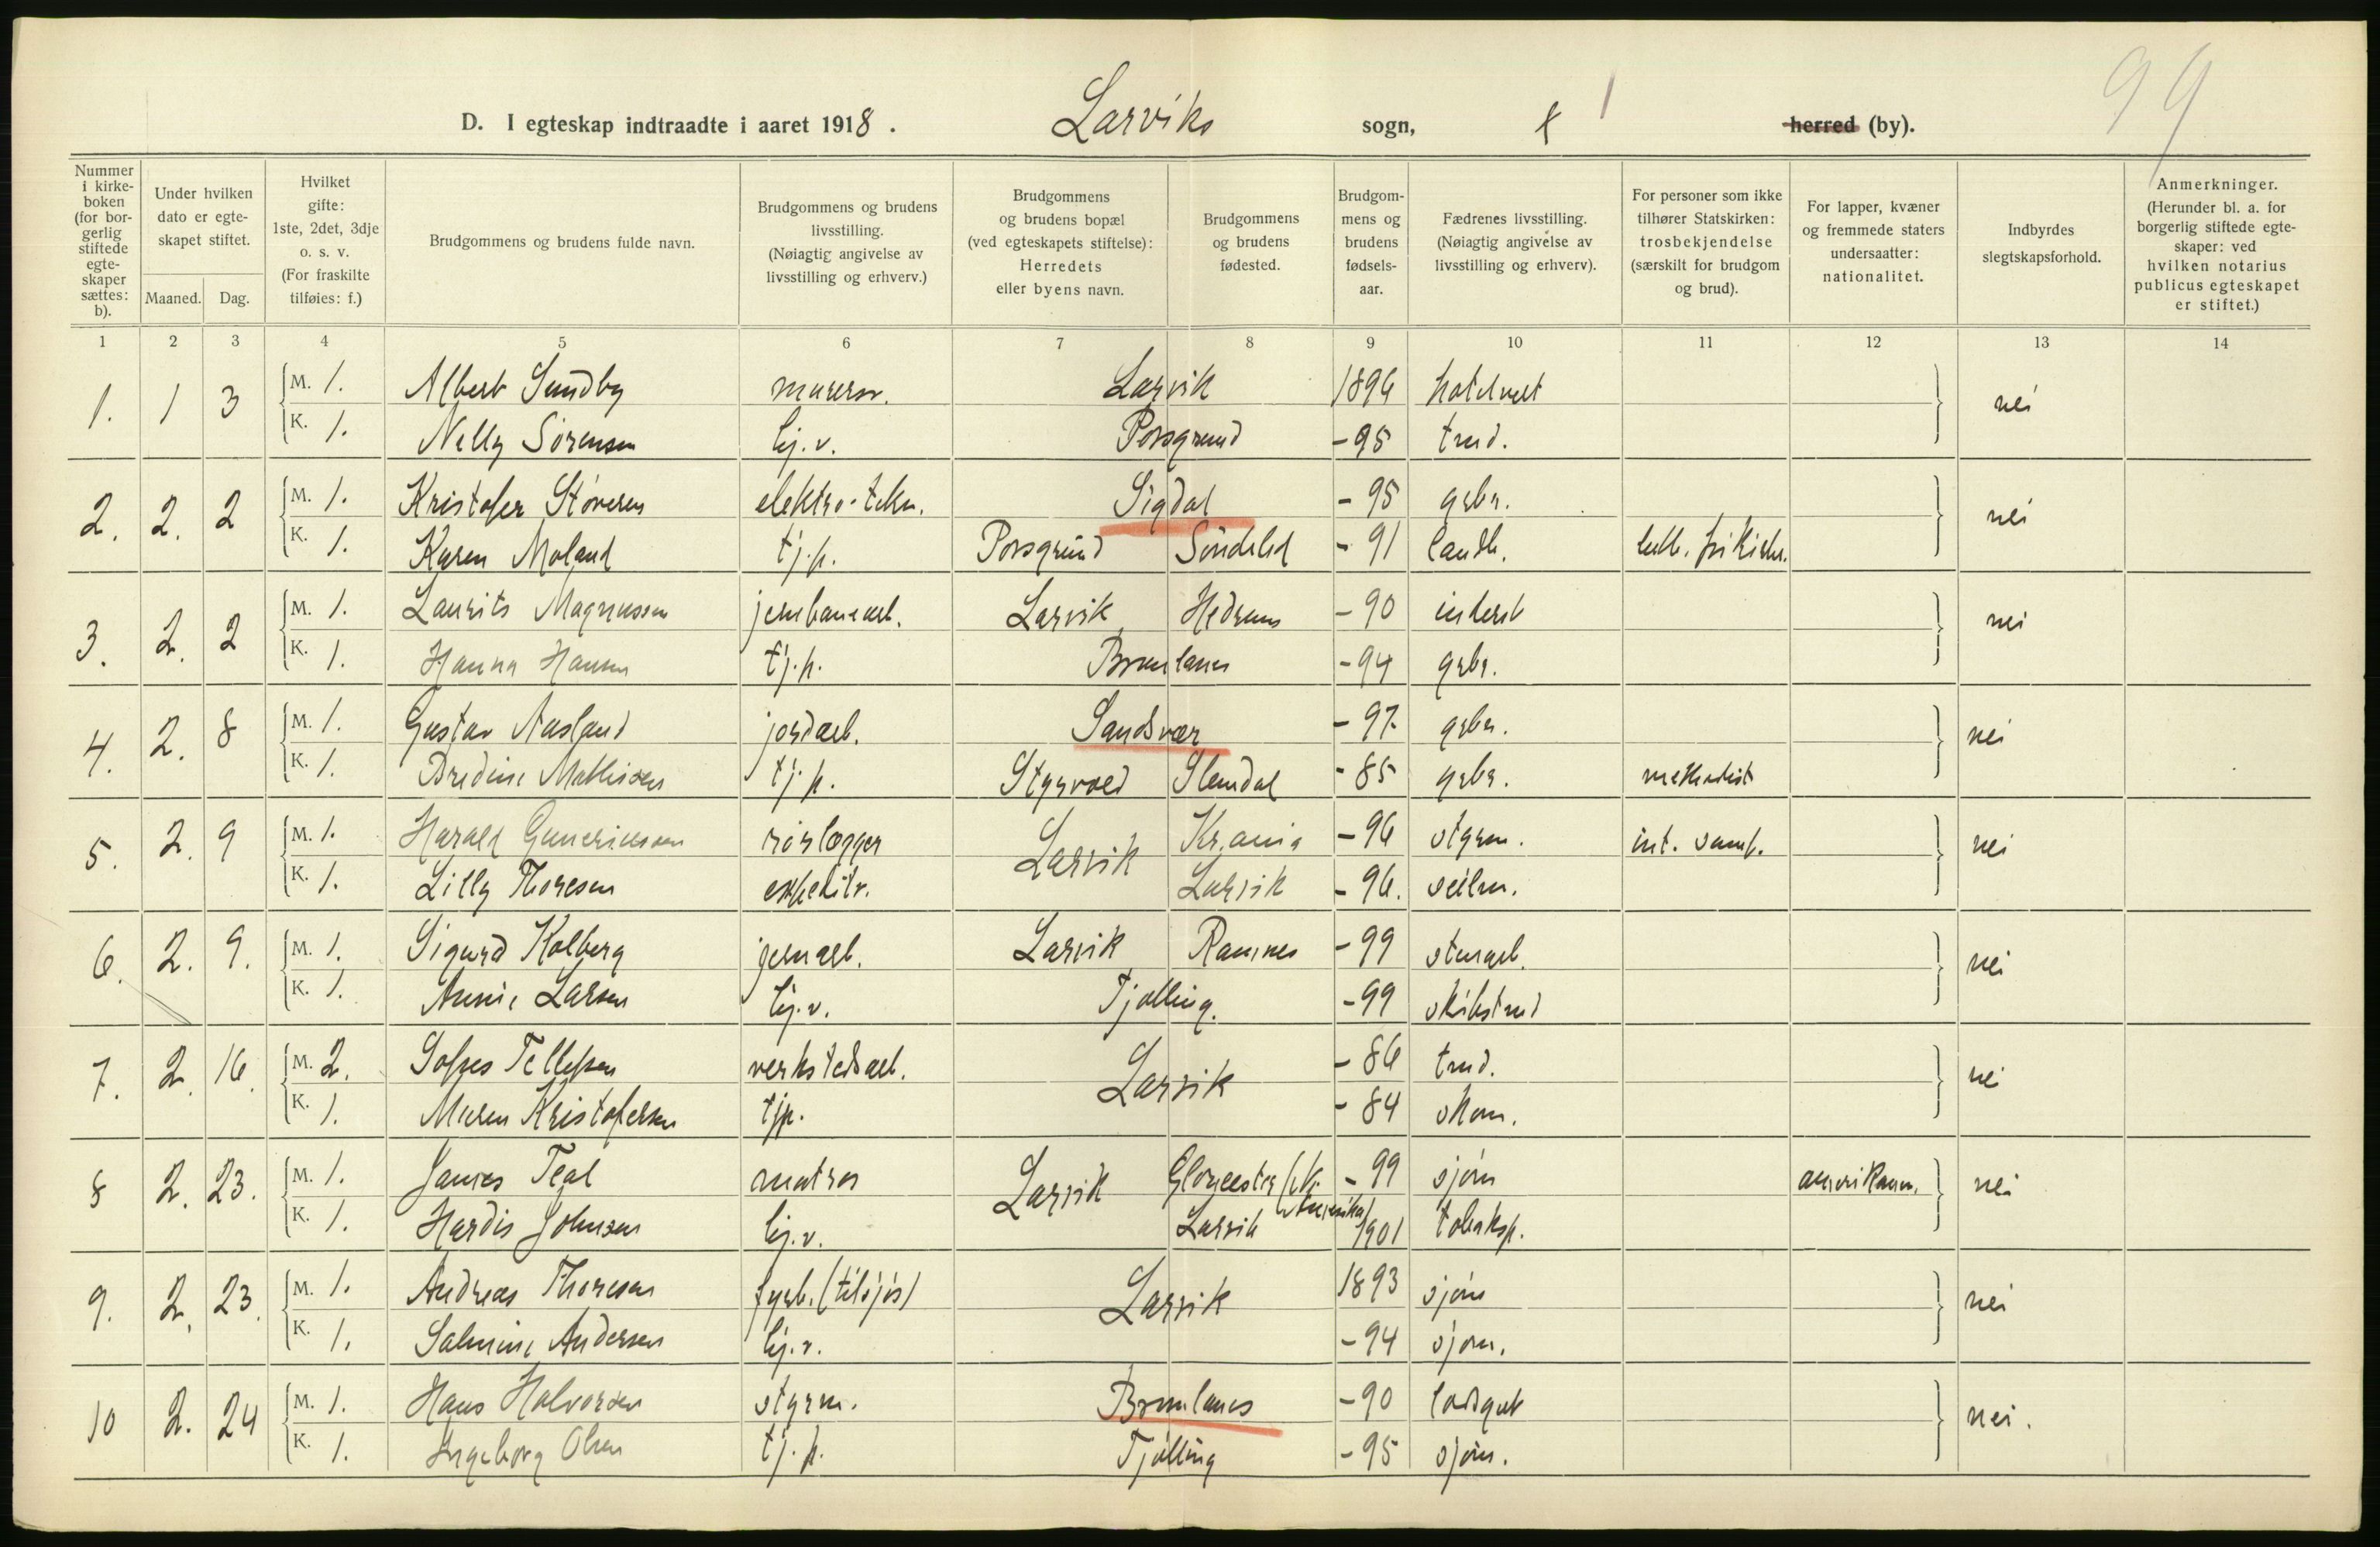 99
D. I egteskap indtraadte i aaret 1918. Larviks sogn, herred (by).
Nummer i kirkeboken (for borgerlig stiftede egteskaper sættes: b).
Under hvilken dato er egteskapet stiftet.
Maaned. Dag.
Hvilket gifte: 1ste, 2det, 3dje o. s. v. (For fraskilte tilføies: f.)
Brudgommens og brudens fulde navn.
Brudgommens og brudens livsstilling. (Nøiagtig angivelse av livsstilling og erhverv.)
Brudgommens og brudens bopæl (ved egteskapets stiftelse): Herredets eller byens navn.
Brudgommens og brudens fødested.
Brudgommens og brudens fødselsaar.
Fædrenes livsstilling. (Nøiagtig angivelse av livsstilling og erhverv).
For personer som ikke tilhører Statskirken: trosbekjendelse (særskilt for brudgom og brud).
For lapper, kvæner og fremmede staters undersaatter: nationalitet.
Indbyrdes slegtskapsforhold.
Anmerkninger. (Herunder bl. a. for borgerlig stiftede egteskaper: ved hvilken notarius publicus egteskapet er stiftet.)
1 2 3 4 5 6 7 8 9 10 11 12 13 14
1. 1 3 M. 1. Albert Sundby murersv. Larvik 1896 nei
K. 1. Nelly Sørensen hj. v. Porsgrund - 95 tmd.
2. 2. 2 M. 1. Kristofer Støveren elektro-tekn. Sigdal - 95 grbr. nei
K. 1. Karen Moland tj. p. Porsgrund Søndeled - 91 landh. luth. frikirke.
3. 2. 2 M. 1. Laurits Magnussen jernbanearb. Larvik Hedrum - 90 inderst nei
K. 1. Hanna Hansen tj. p. Brunlanes - 94 grbr.
4. 2. 8 M. 1. Gustav Aasland jordarb. Sandsvær - 97 grbr. nei
K. 1. Bredine Mathisen tj. p. Styrvold Slemdal - 85 grbr. methodist
5. 2. 9 M. 1. Harald Guneriussen rørlægger Larvik Kr.ania - 96 styrm. int. samf. nei
K. 1. Lilly Thoresen expeditr. Larvik - 96. seilm.
6. 2. 9. M. 1. Sigurd Kolberg jernarb. Larvik Ramnes - 99 stenarb. nei
K. 1. Annie Larsen hj. v. Tjølling. - 99 skibstmd
7. 2. 16. M. 2. Sofus Tellefsen verkstedsarb. Larvik - 86 tmd. nei
K. 1. Maren Kristofersen tjp. - 84 skom.
8 2. 23. M. 1. James Teal matros Larvik Gloucester (N. Amerika) - 99 sjøm amerikann. nei
K. 1. Hardis Johnsen hj. v. Larvik 1901 tobaksp.
9. 2. 23. M. 1. Andreas Thoresen fyrb. (tilsjøs) Larvik 1893 sjøm nei
K. 1. Salmine Andersen hj. v. - 94 sjøm.
10 2. 24 M. 1. Hans Halvorsen styrm. Brunlanes - 90 nei.
K. 1. Ingeborg Olsen tj. p. Tjølling - 95 sjøm.